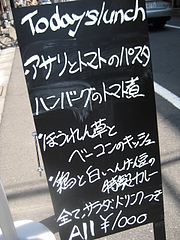 Today's lunch
・アサリとトマトのパスタ
ハンバーグのトマト煮
・ほうれん草と
ベーコンのキッシュ
・鶏と白いんげん豆の
特製カレー
全てサラダ・ドリンクつき
All ¥1,000